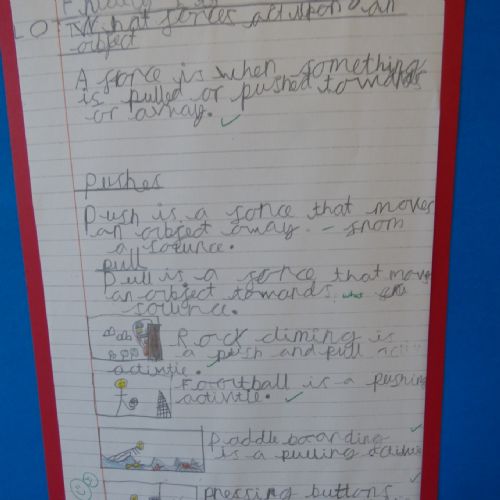 LO: What forces act upon an
object
A force is when something
is pulled or pushed towards
or away.
pushes
Push is a force that moves
an object away - from
a sourunce.
pull
Pull is a force that moves
an object towards
sourunce.
Rock climing is
a push and pull
activitie.
Football is a pushing
activitie.
Paddle boarding
is a pulling
pressing buttons